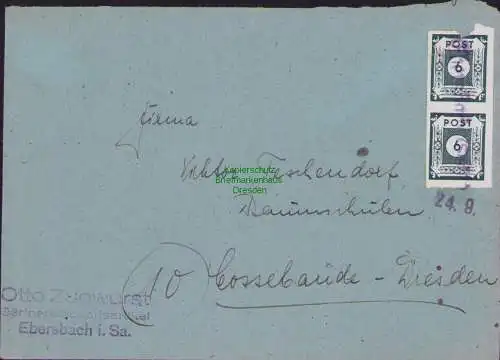 POST
6
POST
6
24. 9.
Firma
Viktor Teschendorf
Baumschulen
10 Cossebaude-Dresden
Kopierschutz
Briefmarkenhaus
Dresden
Otto
Ebersbach i. Sa.